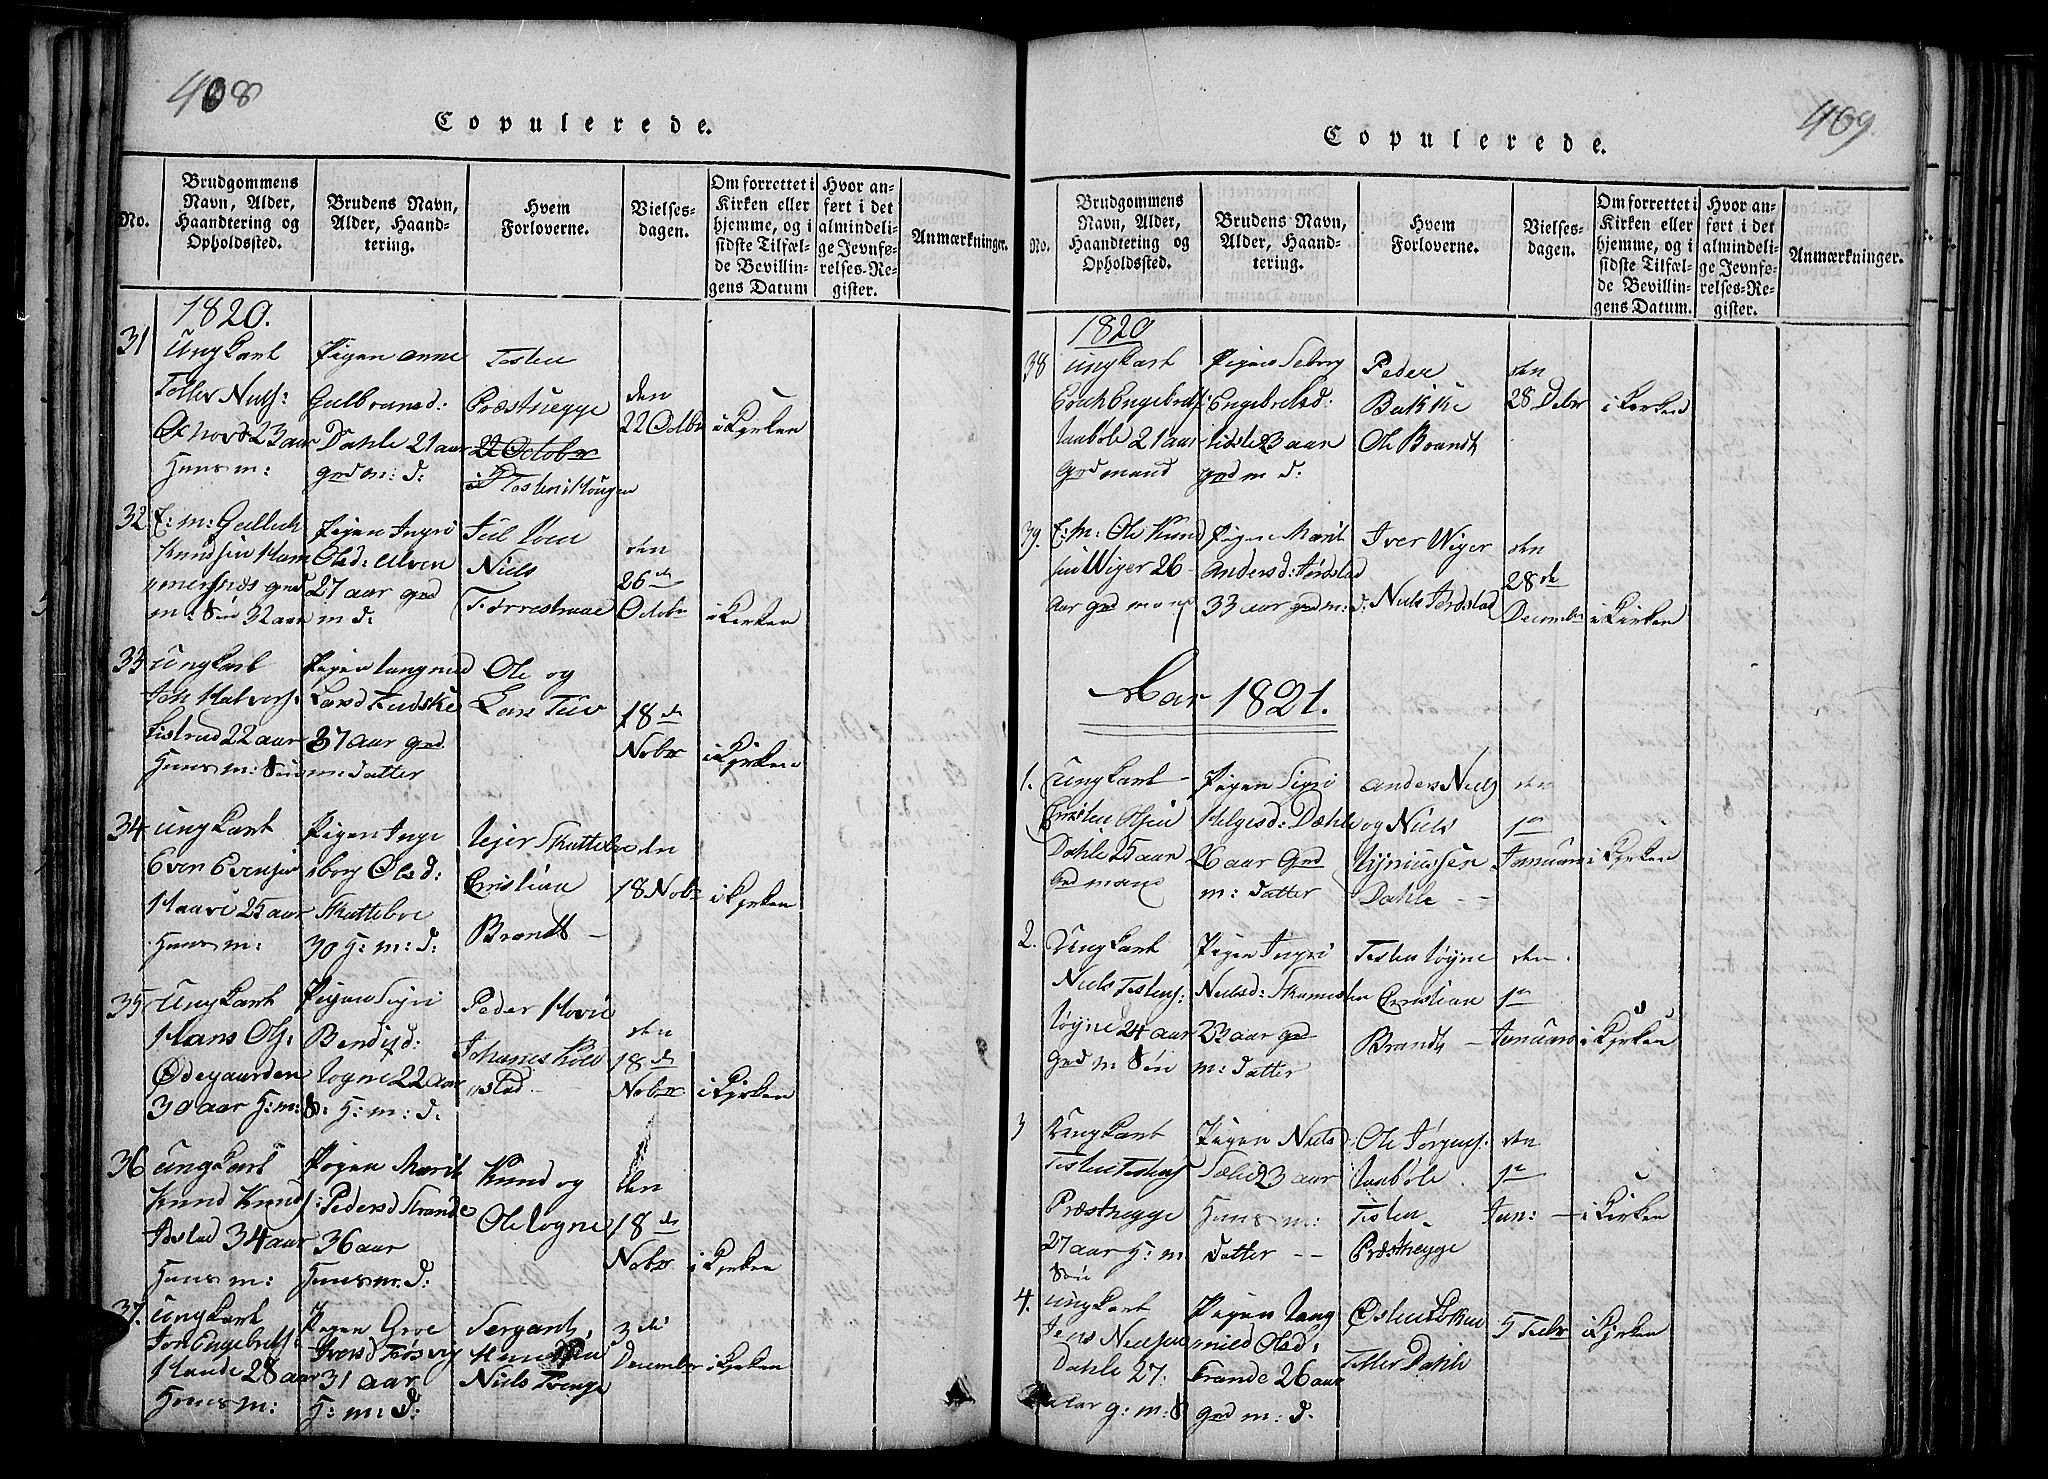 408
Copulerede.
No.
Brudgommens
Navn, Alder,
Haandtering og
Opholdssted.
Brudens Navn,
Alder, Haand-
tering.
Hvem
Forloverne.
Vielses-
dagen.
Om forrettet i
Kirken eller
hjemme, og i
sidste Tilfæl-
de Bevillin-
gens Datum
Hvor an-
ført i det
almindeli-
ge Jevnfø-
relses-Re-
gister.
Anmærkninger.
1820.
31
Ungkarl
Toller
23 aar
Huusm:
Pigen Anne
Gulbransd:
Dahle 21 aar
grdm: d:
Tosten
Præsthegge
22 October
den
22 Octbr
i Kirken
32
E: m: Gullich
Knudsen Ham
mersnæs grd
m: Søn 32 aar
Pigen Ingri
Olsd: Ulven
27 aar grd
m d:
Niels
den
26de
Octobr
i Kirken
33
Ungkarl
Halvors:
22 aar
Huusm: Søn
Pigen
Larsd
37 aar grd
m: Datter
Ole og
Lars
18de
Nobr
i Kirken
34
Ungkarl
Even Evensen
Haave 25 aar
Huusm:
Pigen Inge
borg Olsd:
Skuttebøe
30 H: m: D:
Christian
Brandt
den
18 Nobr
i Kirken
35
Ungkarl
Hans Ols:
Ødegaarden
30 aar H: m: S:
Pigen Sigri
22 aar
H: m: d:
Peder
Johanes
den
18de
Nobr
i Kirken
36
Ungkarl
Knud Knuds:
34 aar
Huusm:
Pigen Marit
Pedersd Strande
36 aar
Huusm. D:
Knud og
Ole
den
18de
Nobr
i Kirken
37.
Ungkarl
Jon Engebrets
28 aar
Huusm:
Pigen Groe
Iversd
31 aar
H: m: D:
Sergant
Niels
3de
December
i Kirken
409.
Copulerede.
No.
Brudgommens
Navn, Alder,
Haandtering og
Opholdssted.
Brudens Navn,
Alder, Haand-
tering.
Hvem
Forloverne.
Vielses-
dagen.
Om forrettet i
Kirken eller
hjemme, og i
sidste Tilfæl-
de Bevillin-
gens Datum.
Hvor an-
ført i det
almindeli-
ge Jevnfø-
relses-Re-
gister.
Anmærkninger.
1820
38
Ungkarl
Engebrets:
21 aar
Grdmand
Pigen Seborg
Engebretsd:
23 aar
grd m d:
Peder
Bakke
Ole Brandt
den
28 Debr
i Kirken
39.
E: M: Ole Knud
sen Wiger 26
aar grd mand
Pigen Marit
Andersd: Fordstad
33 aar grd m: d:
Iver Wiger
Niels Fordstad
den
28de
December
i Kirken
Aar 1821.
1.
Ungkarl
Christen Olsen
Dahle 25 aar
grd mand
Pigen Sigri
Helgesd: Dæhle
26 aar Grd
m: datter
Anders Niels
og Niels
Dahle
den
1ste
Januari
i Kirken
2.
Ungkarl
Niels Tostens:
24 aar
Grd m Søn
Pigen Ingri
Nielsd:
23 aar grd
m: datter
Tosten
Christian
Brandt
den
1ste
Januari
i Kirken
3
Ungkarl
Tosten Tostens
Præsthegge
27 aar H: m
Søn
Pigen
23 aar
Huusm:
datter
Ole Jørgens:
Tosten
Præsthegge
den
1ste
Jan:
i Kirken
4.
Ungkarl
Jens Nielsen
Dahle 27
aar g: m: S
Pigen Lang
nied Olsd:
Trande 26 aar
grd m: d:
Østen
Toller Dahle
5 Febr
i Kirken